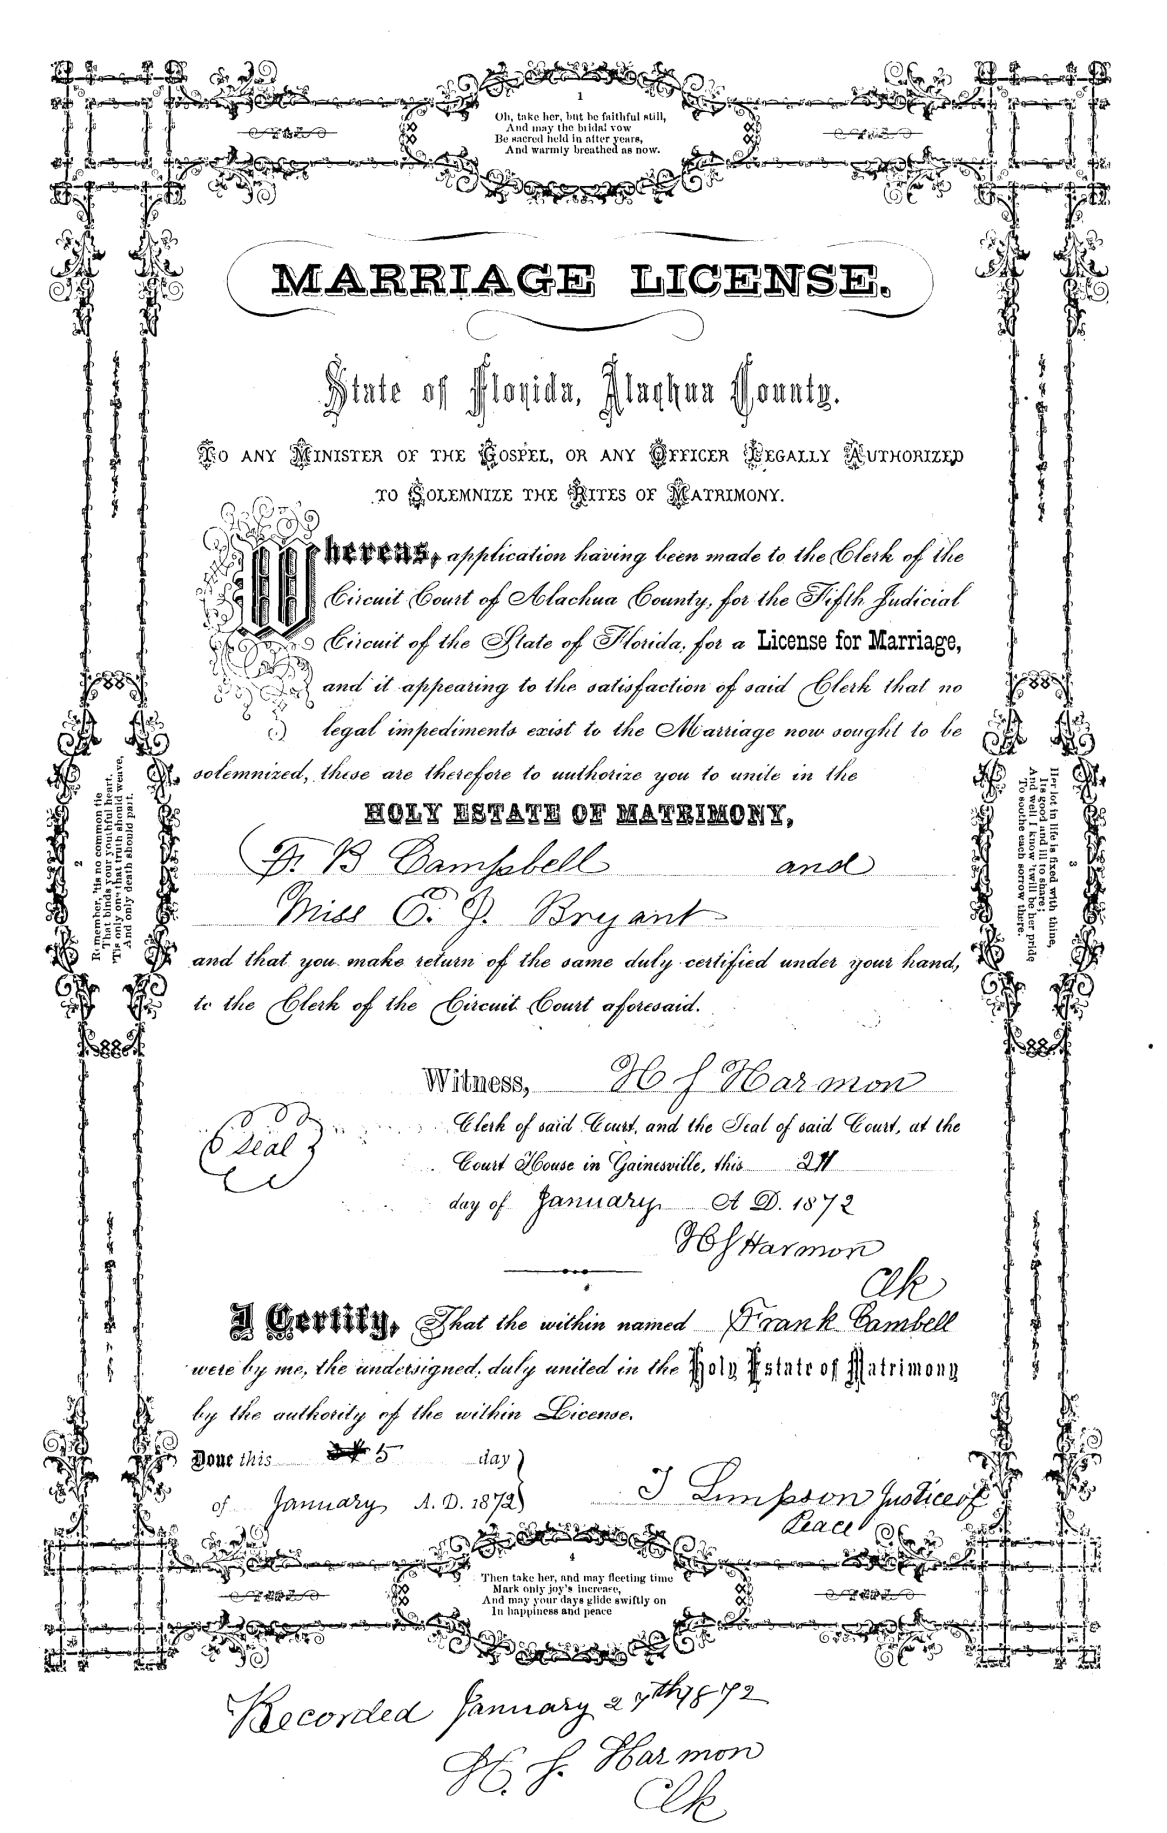 1
Oh, take her, but be faithful still,
And may the bridal vow
Be sacred held in after years,
And warmly breathed as now.
MARRIAGE LICENSE.
State of Florida, Alachua County.
TO ANY MINISTER OF THE GOSPEL, OR ANY OFFICER LEGALLY AUTHORIZED
TO SOLEMNIZE THE RITES OF MATRIMONY.
Whereas, application having been made to the Clerk of the
Circuit Court of Alachua County, for the Fifth Judicial
Circuit of the State of Florida, for a License for Marriage,
and it appearing to the satisfaction of said Clerk that no
legal impediments exist to the Marriage now sought to be
solemnized, these are therefore to authorize you to unite in the
HOLY ESTATE OF MATRIMONY,
F. B Campbell and
Miss E. J. Bryant
and that you make return of the same duly certified under your hand,
to the Clerk of the Circuit Court aforesaid.
Witness, H J Harmon
Seal
Clerk of said Court, and the Seal of said Court, at the
Court House in Gainesville, this
day of January A D. 1872
H J Harmon
Clk
I Certify, That the within named Frank Cambell
were by me, the undersigned, duly united in the Holy Estate of Matrimony
by the authority of the within License.
Done this 5 day
of January A. D. 1872
T Simpson Justice of
Peace
2
Remember, 'tis no common tie
That binds your youthful heart,
'Tis only one that truth should weave,
And only death should part.
3
Her lot in life is fixed with thine,
Its good and ill to share;
And well I know 'twill be her pride
To soothe each sorrow there.
4
Then take her, and may fleeting time
Mark only joy's increase,
And may your days glide swiftly on
In happiness and peace
Recorded January 27th 1872
H. J. Harmon
Clk